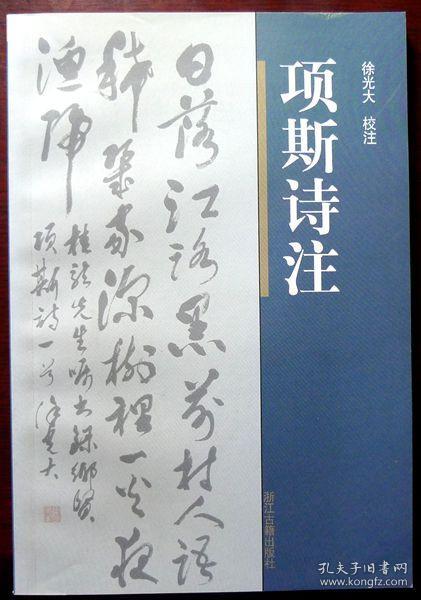 徐光大 校注
项斯诗注
浙江古籍出版社
日落江路黑前村人語
稀幾家深樹裡一火夜
漁歸
桂龍先生嘱书録鄉賢
項斯詩一首 徐光大
孔夫子旧书网
www.kongfz.com